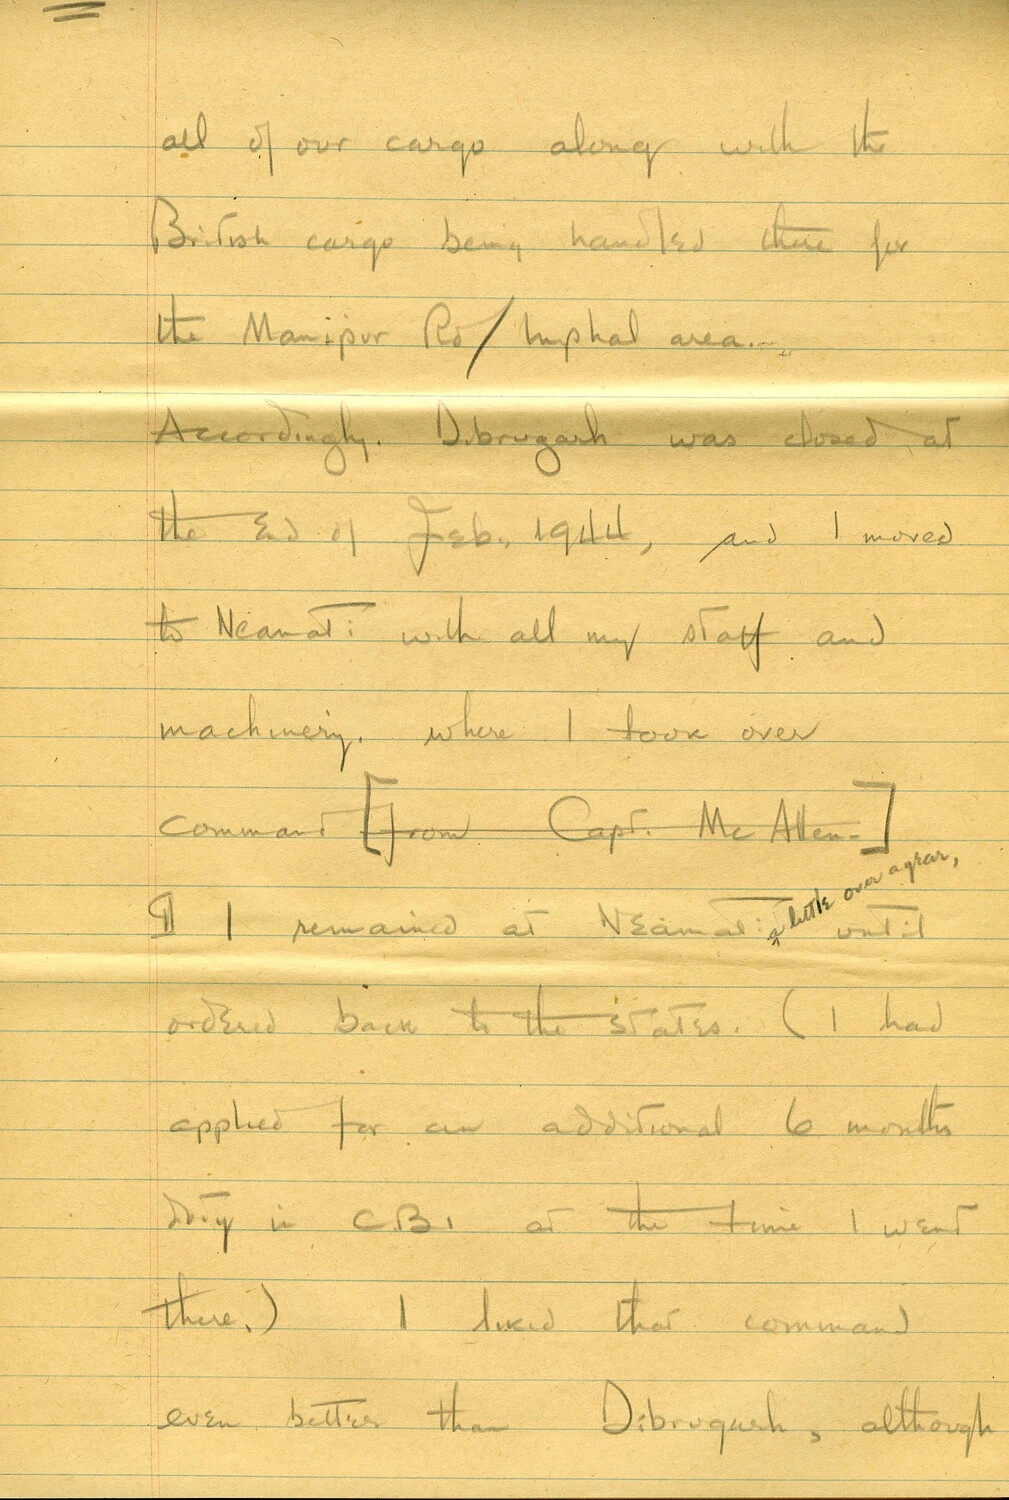 all of our cargo along with the
British cargo being handled there for
the Manipur Rd/Imphal area....
Accordingly. Dibrugarh was closed at
the End of Feb. 1944, and I moved
to Neamati with all my staff and
machinery. where I took over
command [from Capt. Mc Allen-]
a little over a year,
¶ I remained at NEamati until
ordered back to the states. (I had
applied for an additional 6 months
duty in CBI at the time I went
there.) I liked that command
even better than Dibrugarh, although